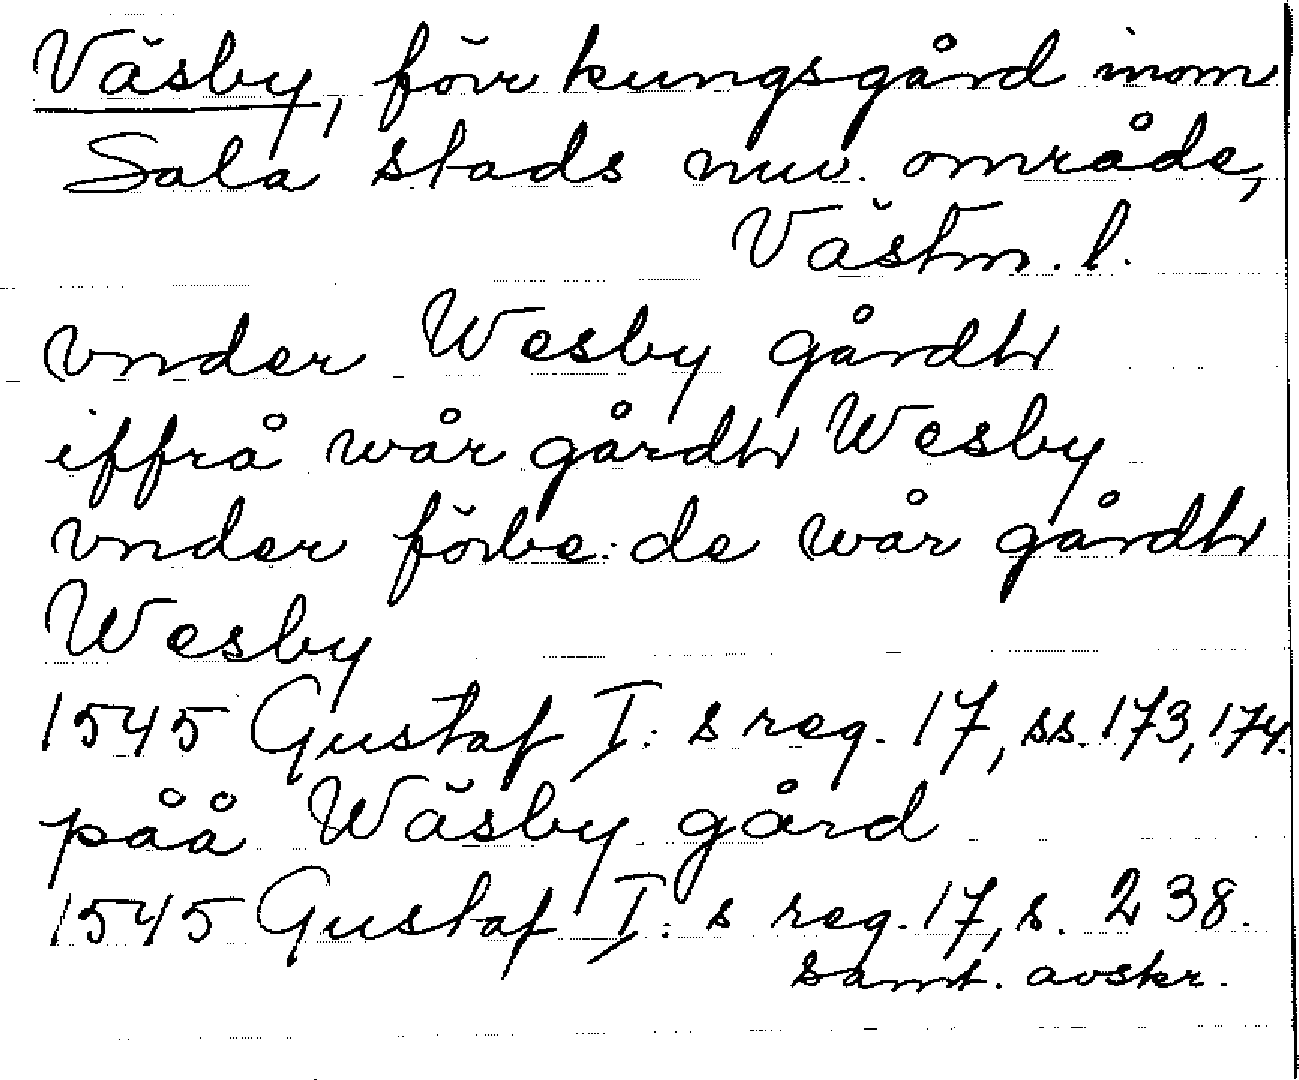 Väsby, förr kungsgård inom
Sala stads nuv. område,
Västm. l.
vnder Wesby gårdh
iffrå wår gårdh Wesby
vnder förbe: de wår gårdh
Wesby
1545 Gustaf I: s reg. 17, ss. 173, 174.
påå Wäsby gård
1545 Gustaf I: s reg. 17, s. 238.
samt. avskr.